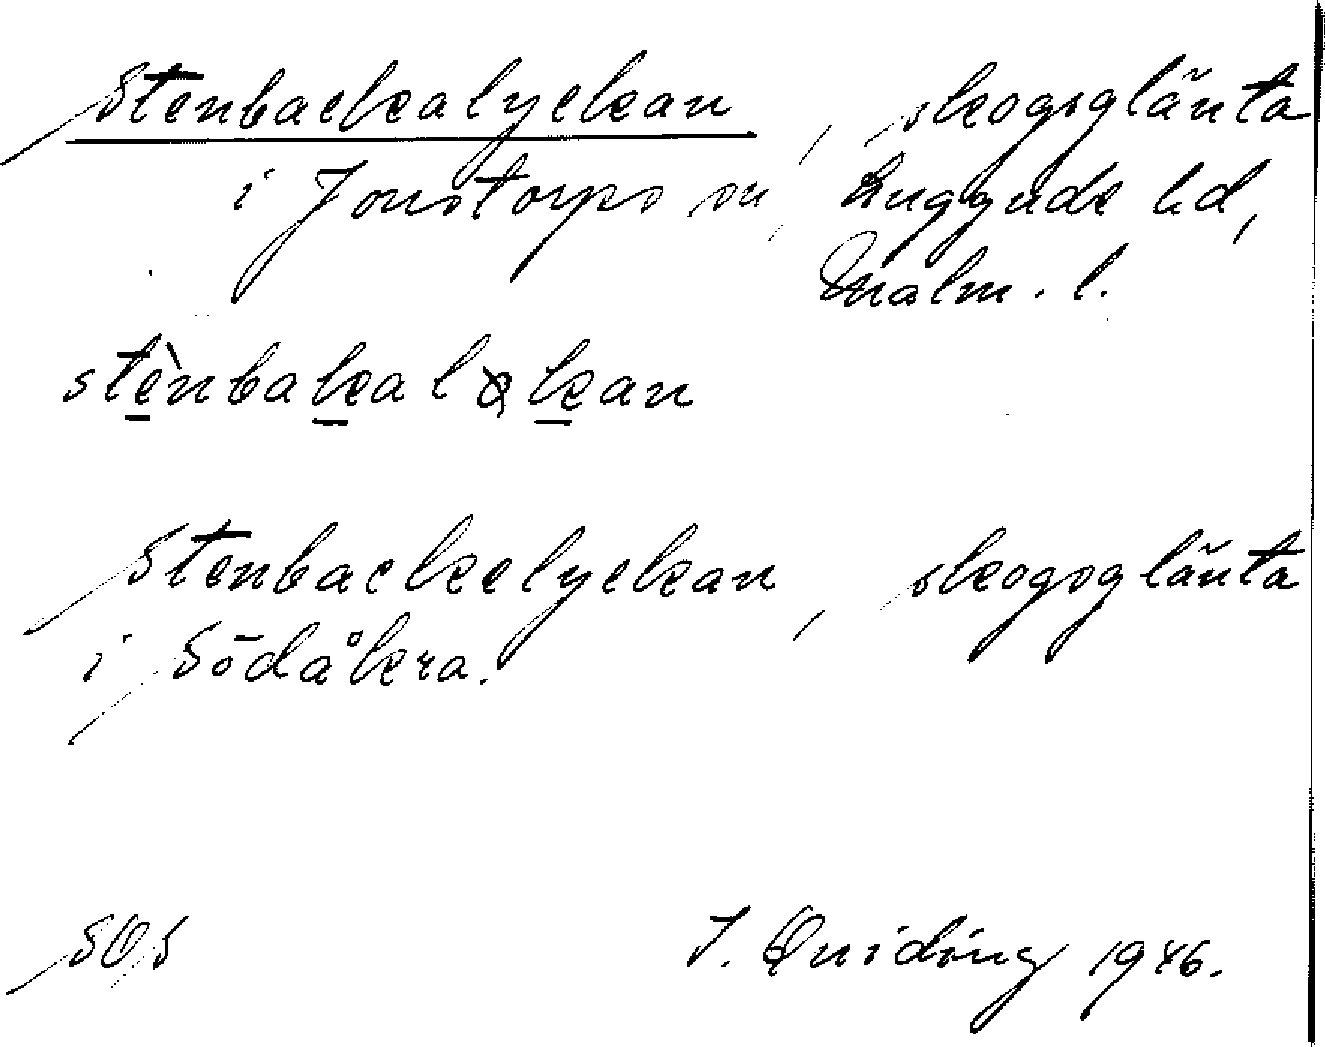 Stenbackalyckan, skogsglänta
i Jonstorps sn, Luggude hd,
Malm. l.
stènbakalykan
Stenbackelyckan, skogsglänta
i Södåkra.
SOS I. Quiding 1946.